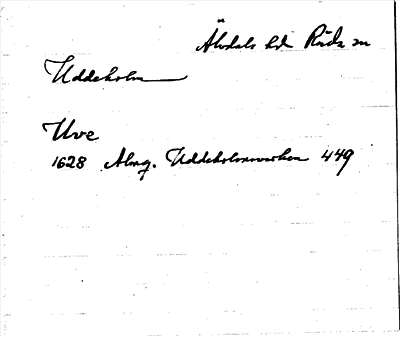 Älvdals hd Råda sn
Uddeholm
Uve
1628 Almq. Uddeholmsverken 449